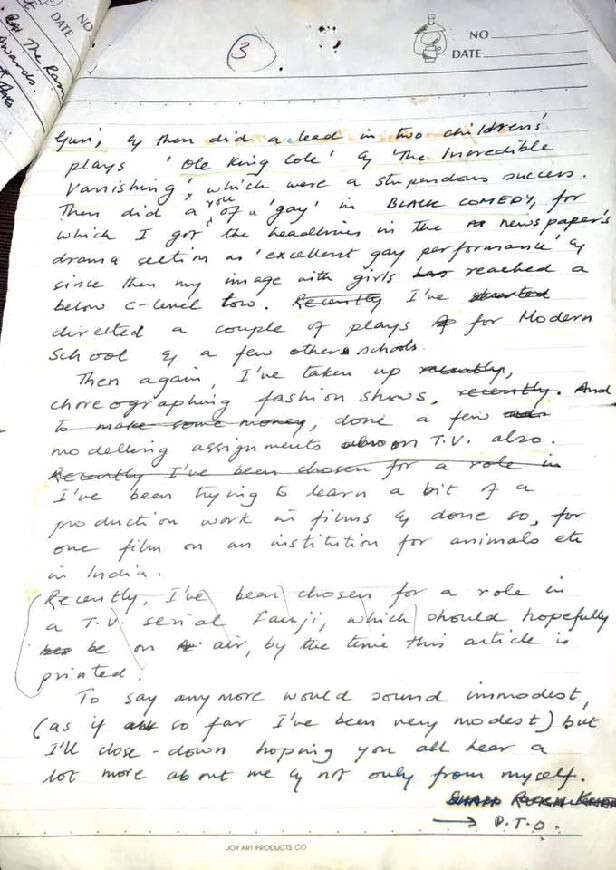 NO
DATE
DATE NO
The Ran
3
Gun', & then did a lead in two childrens'
plays 'Ole King Cole' & 'The Incredible
Vanishing', which were a stupendous success.
Then did a role of a 'gay' in BLACK COMEDY, for
which I got the headlines in the newspaper's
drama section as 'excellent gay performance' &
since then my image with girls has reached a
below C-level tow. Recently I've started
directed a couple of plays for Modern
School & a few other schools.
Then again, I've taken up recently,
choreographing fashion shows, recently. And
to make some money, done a few
modelling assignments on T.V. also.
Recently I've been chosen for a role in
I've been trying to learn a bit of a
production work in films & done so, for
one film on an institution for animals etc
in India.
(Recently, I've been chosen for a role in
a T.V. serial Fauji, which should hopefully
be on air, by the time this article is
printed.
To say anymore would sound immodest,
(as if so far I've been very modest) but
I'll close-down hopping you all hear a
lot more about me & not only from myself.
SHAH RUKH KHAN
→ P.T.O.
JOY ART PRODUCTS CO